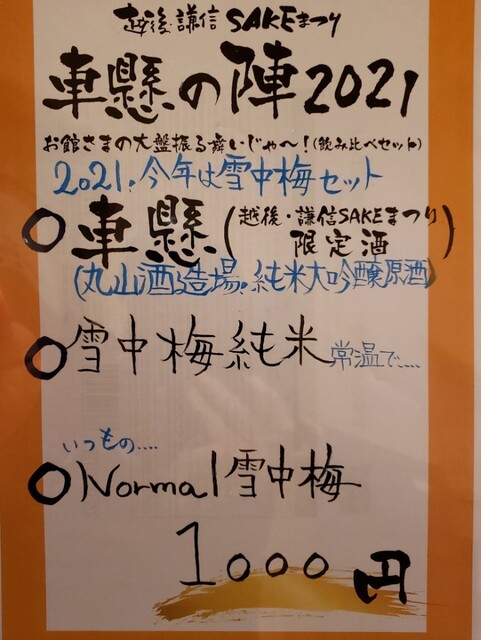 越後・謙信SAKEまつり
車懸の陣2021
お館さまの大盤振る舞いじゃ〜！（飲み比べセット）
2021.今年は雪中梅セット
○車懸（越後・謙信SAKEまつり
限定酒）
（丸山酒造場.純米大吟醸原酒）
○雪中梅純米 常温で.....
いつもの....
○Normal雪中梅
1000円